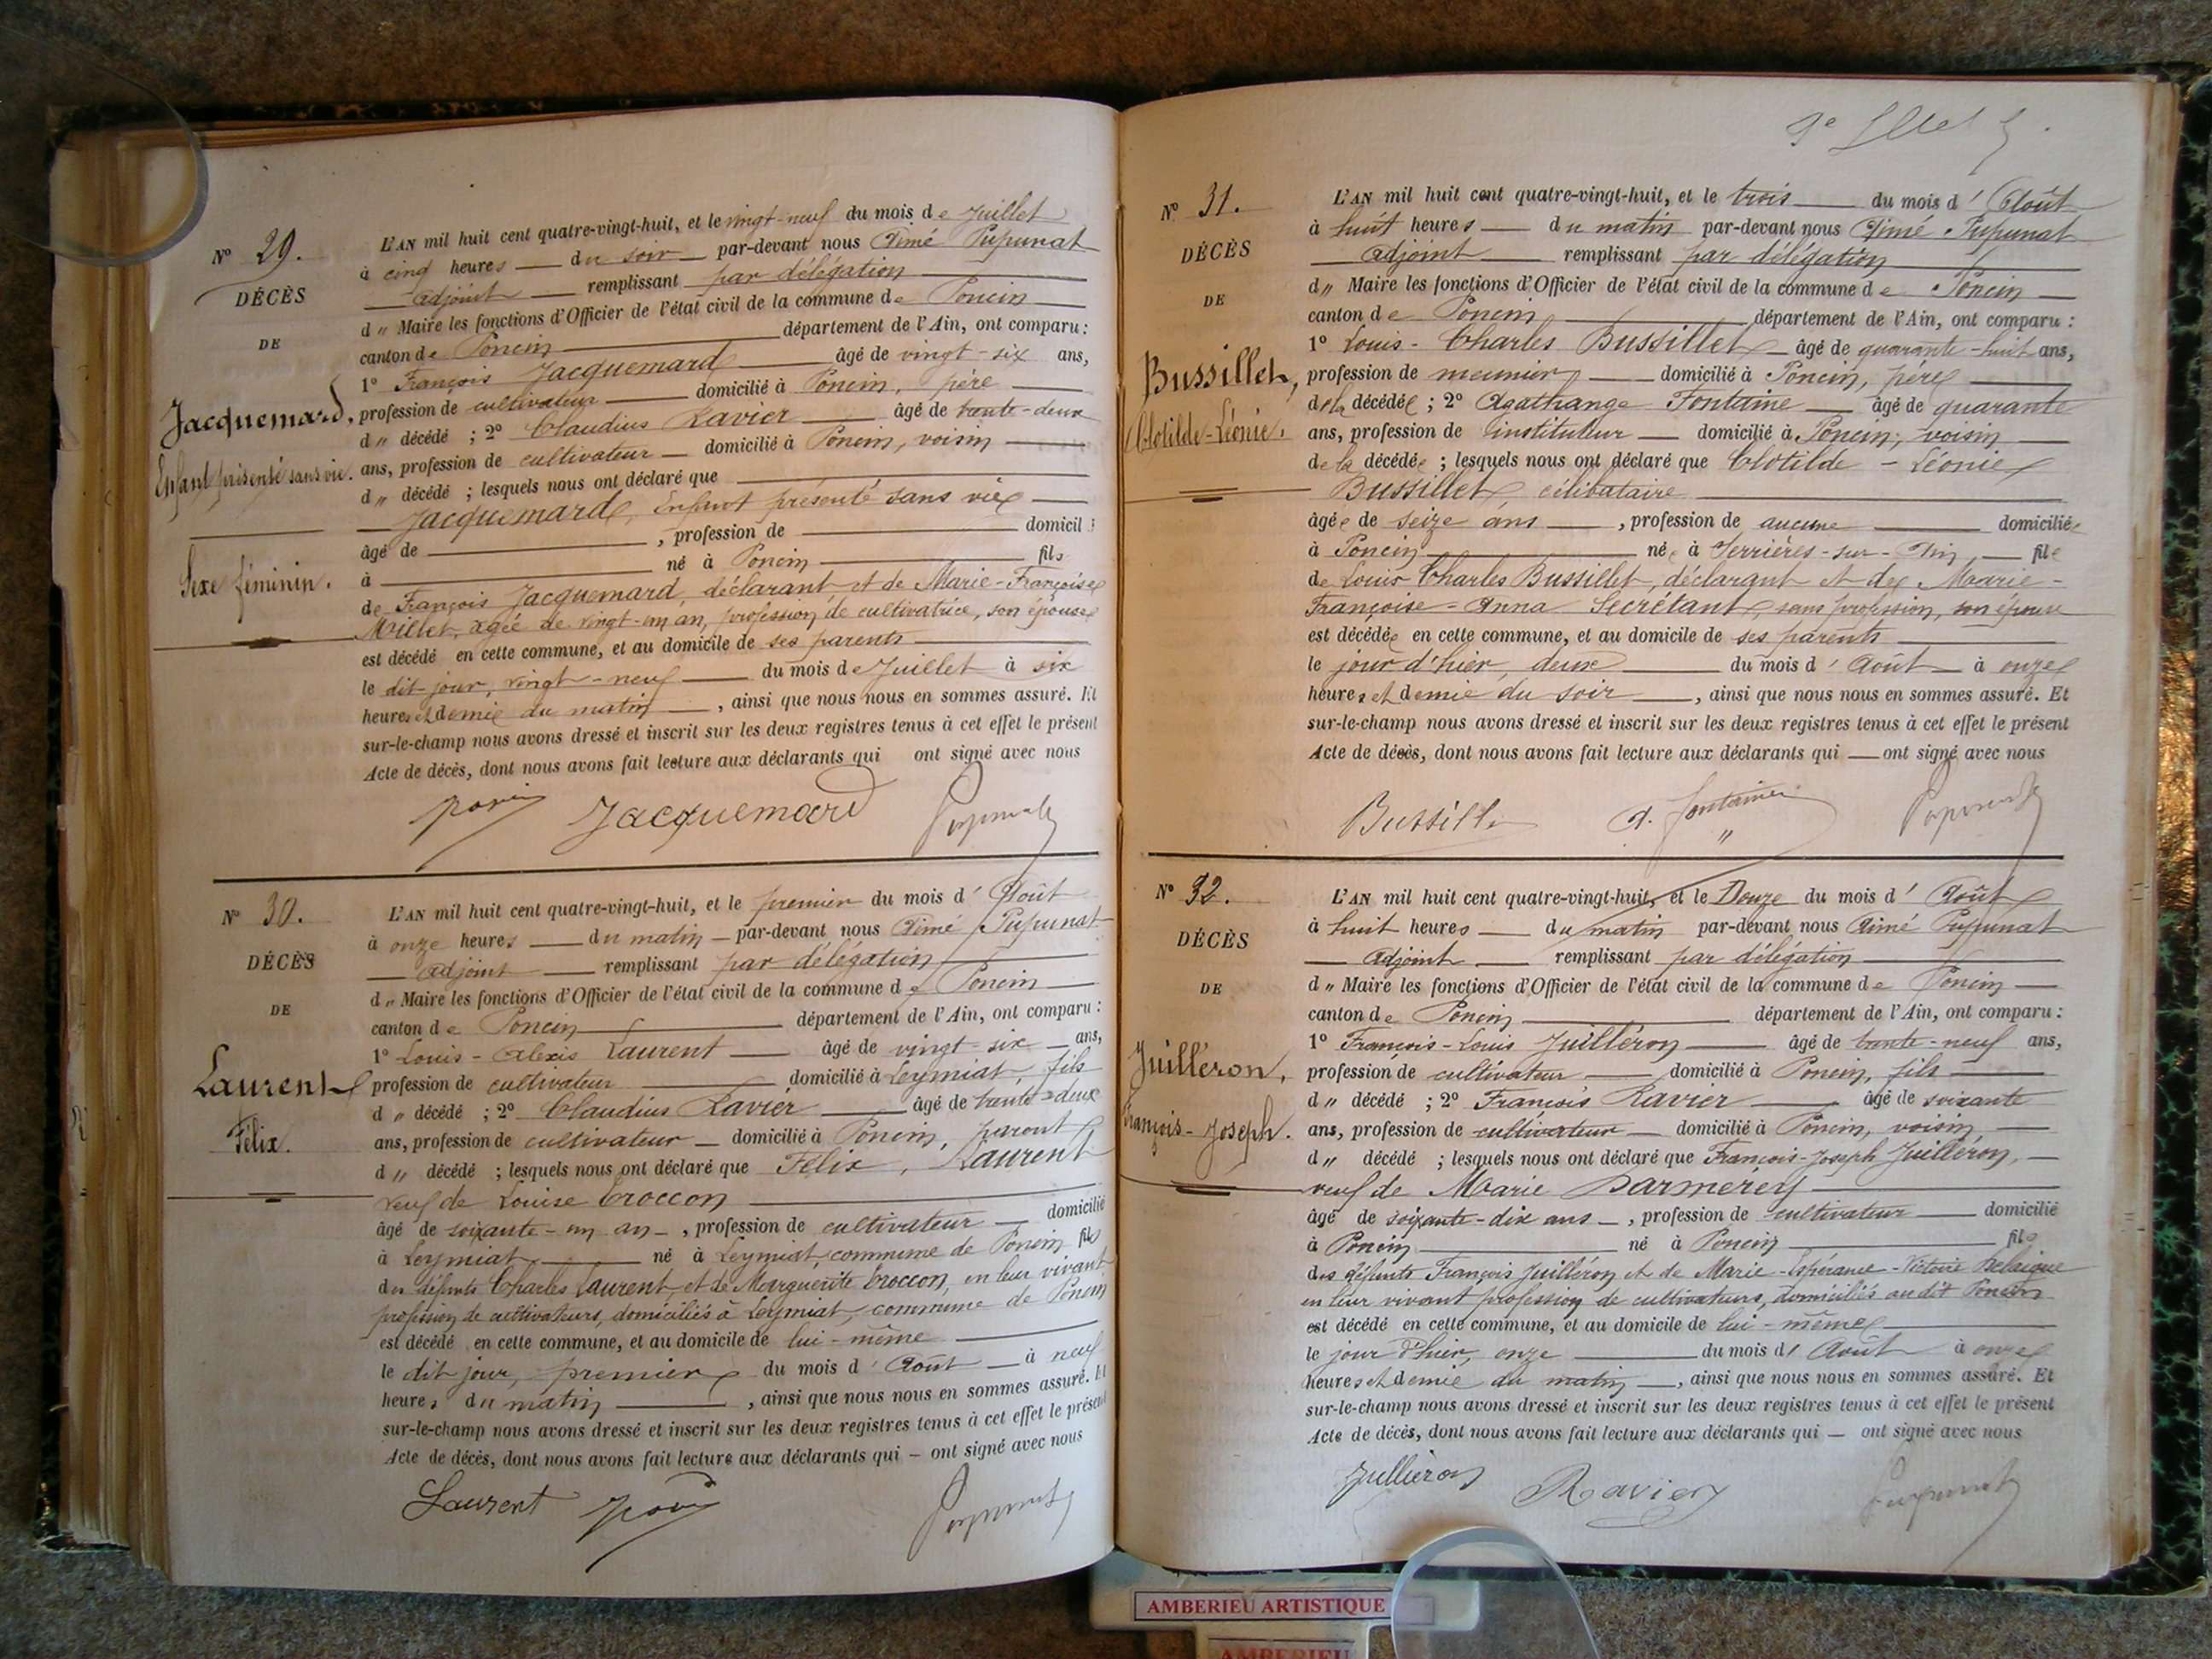 N° 29.
DÉCÈS
DE
Jacquemard,
Enfant présenté sans vie.
Sexe féminin.
L'AN mil huit cent quatre-vingt-huit, et le vingt-neuf du mois de Juillet
à cinq heures du soir par-devant nous Aimé Pupunat
adjoint remplissant par délégation
d" Maire les fonctions d'Officier de l'état civil de la commune de Poncin
canton de Poncin département de l'Ain, ont comparu :
1° François Jacquemard âgé de vingt-six ans,
profession de cultivateur domicilié à Poncin, père
d" décédé ; 2° Claudius Ravier âgé de trente-deux
ans, profession de cultivateur domicilié à Poncin, voisin
d" décédé ; lesquels nous ont déclaré que
Jacquemard, Enfant présenté sans vie
âgé de , profession de domicil
à né à Poncin fils
de François Jacquemard, déclarant et de Marie-Françoise
Millet, agée de vingt-un an, profession de cultivatrice, son épouse
est décédé en cette commune, et au domicile de ses parents
le dit jour, vingt-neuf du mois de Juillet à six
heures et demie du matin , ainsi que nous nous en sommes assuré. Et
sur-le-champ nous avons dressé et inscrit sur les deux registres tenus à cet effet le présent
Acte de décès, dont nous avons fait lecture aux déclarants qui ont signé avec nous
Jacquemard
N° 30.
DÉCÈS
DE
Laurent
Félix.
L'AN mil huit cent quatre-vingt-huit, et le premier du mois d' Août
à onze heures du matin par-devant nous Aimé Pupunat
adjoint remplissant par délégation
d" Maire les fonctions d'Officier de l'état civil de la commune de Poncin
canton de Poncin département de l'Ain, ont comparu :
1° Louis-Alexis Laurent âgé de vingt-six ans,
profession de cultivateur domicilié à Leymiat, fils
d" décédé ; 2° Claudius Ravier âgé de trente-deux
ans, profession de cultivateur domicilié à Poncin, parent
d" décédé ; lesquels nous ont déclaré que Félix, Laurent
veuf de Louise Croccon
âgé de soixante-un an , profession de cultivateur domicilié
à Leymiat né à Leymiat, commune de Poncin fils
des défunts Charles Laurent, et de Marguerite Croccon, en leur vivant
profession de cultivateurs, domiciliés à Leymiat, commune de Poncin
est décédé en cette commune, et au domicile de lui-même
le dit jour, premier du mois d' Août à neuf
heures du matin , ainsi que nous nous en sommes assuré. Et
sur-le-champ nous avons dressé et inscrit sur les deux registres tenus à cet effet le présent
Acte de décès, dont nous avons fait lecture aux déclarants qui – ont signé avec nous
Laurent
N° 31.
DÉCÈS
DE
Bussillet,
Clotilde-Léonie.
L'AN mil huit cent quatre-vingt-huit, et le trois du mois d' Août
à huit heures du matin par-devant nous Aimé Pupunat
adjoint remplissant par délégation
d" Maire les fonctions d'Officier de l'état civil de la commune de Poncin
canton de Poncin département de l'Ain, ont comparu :
1° Louis-Charles Bussillet âgé de quarante-huit ans,
profession de meunier domicilié à Poncin, père
de la décédée ; 2° Agathange Fontaine âgé de quarante
ans, profession de instituteur domicilié à Poncin, voisin
de la décédée ; lesquels nous ont déclaré que Clotilde-Léonie
Bussillet célibataire
âgée de seize ans , profession de aucune domiciliée
à Poncin née à Serrières-sur-Ain, file
de Louis Charles Bussillet, déclarant et de Maarie-
Françoise-Anna Secrétant, sans profession, son épouse
est décédée en cette commune, et au domicile de ses parents
le jour d'hier, deux du mois d' Août à onze
heures et demie du soir , ainsi que nous nous en sommes assuré. Et
sur-le-champ nous avons dressé et inscrit sur les deux registres tenus à cet effet le présent
Acte de décès, dont nous avons fait lecture aux déclarants qui — ont signé avec nous
A. Fontaine
N° 32.
DÉCÈS
DE
Juilléron,
François-Joseph.
L'AN mil huit cent quatre-vingt-huit, et le Douze du mois d' Août
à huit heures du matin par-devant nous Aimé Pupunat
adjoint remplissant par délégation
d" Maire les fonctions d'Officier de l'état civil de la commune de Poncin
canton de Poncin département de l'Ain, ont comparu :
1° François-Louis Juilléron âgé de trente-neuf ans,
profession de cultivateur domicilié à Poncin, fils
d" décédé ; 2° François Ravier âgé de soixante
ans, profession de cultivateur domicilié à Poncin, voisin
d" décédé ; lesquels nous ont déclaré que François-Joseph Juilléron,
veuf de Marie Parmerey
âgé de soixante-dix ans , profession de cultivateur domicilié
à Poncin né à Poncin fils
des défunts François Juilléron et de Marie-Espérance-Victoire
en leur vivant profession de cultivateurs, domiciliés au dit Poncin
est décédé en cette commune, et au domicile de lui-même
le jour d'hier, onze du mois d' Août à onze
heures et demie du matin , ainsi que nous nous en sommes assuré. Et
sur-le-champ nous avons dressé et inscrit sur les deux registres tenus à cet effet le présent
Acte de décès, dont nous avons fait lecture aux déclarants qui — ont signé avec nous
Jullièron Ravier
AMBERIEU ARTISTIQUE
AMBERIEU